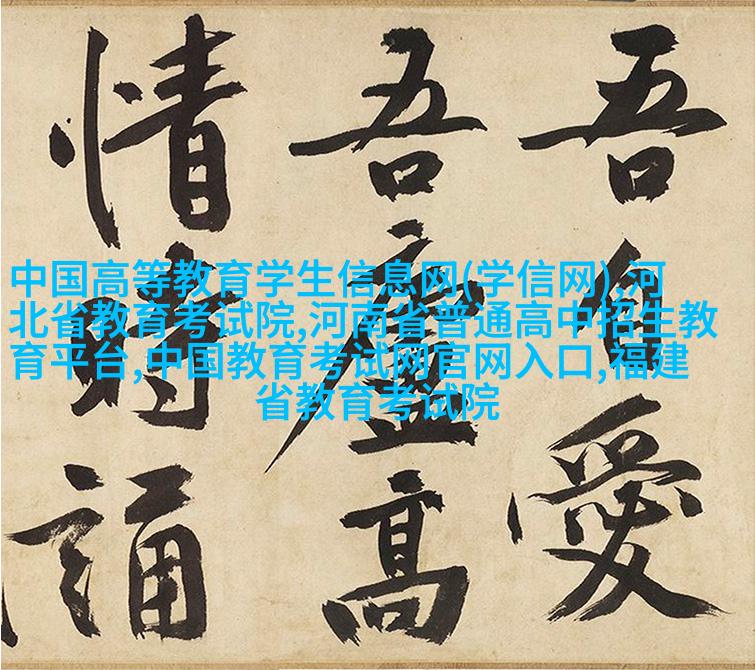 吾自愛
吾廬高
情時誦
中国高等教育学生信息网(学信网),河
北省教育考试院,河南省普通高中招生教
育平台,中国教育考试网官网入口,福建
省教育考试院